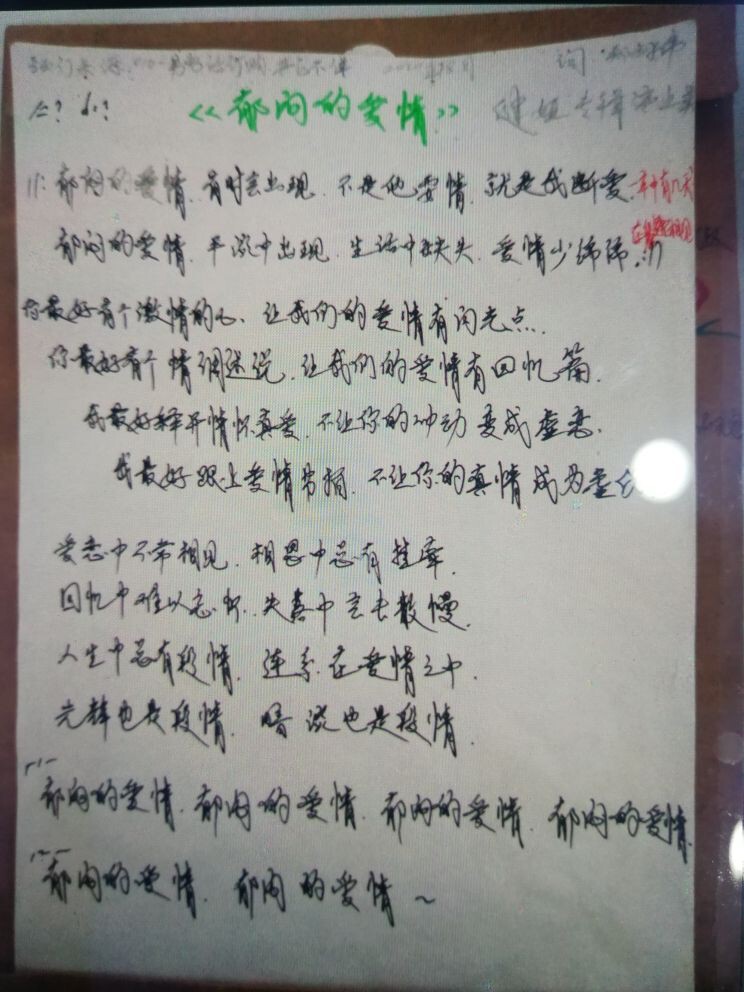 词
1=? b1?
《郁闷的爱情》
11: 郁闷的爱情, 有时会出现, 不是他安情, 就是我断爱.
郁闷的爱情, 平淡中出现, 生活中缺失, 爱情少绵绵. :11
你最好有个激情的心, 让我们的爱情有闪光点.
你最好有个情调述说, 让我们的爱情有回忆篇.
我最好释开情怀真爱, 不让你的冲动变成虚恋.
我最好跟上爱情节拍, 不让你的真情成为
爱恋中不常相见, 相思中总有挂牵.
回忆中难以忘怀, 失落中会去散慢.
人生中总有段情, 连系在爱情之中.
光辉也是段情, 暗淡也是段情.
郁闷的爱情, 郁闷的爱情, 郁闷的爱情, 郁闷的爱情,
郁闷的爱情, 郁闷的爱情~